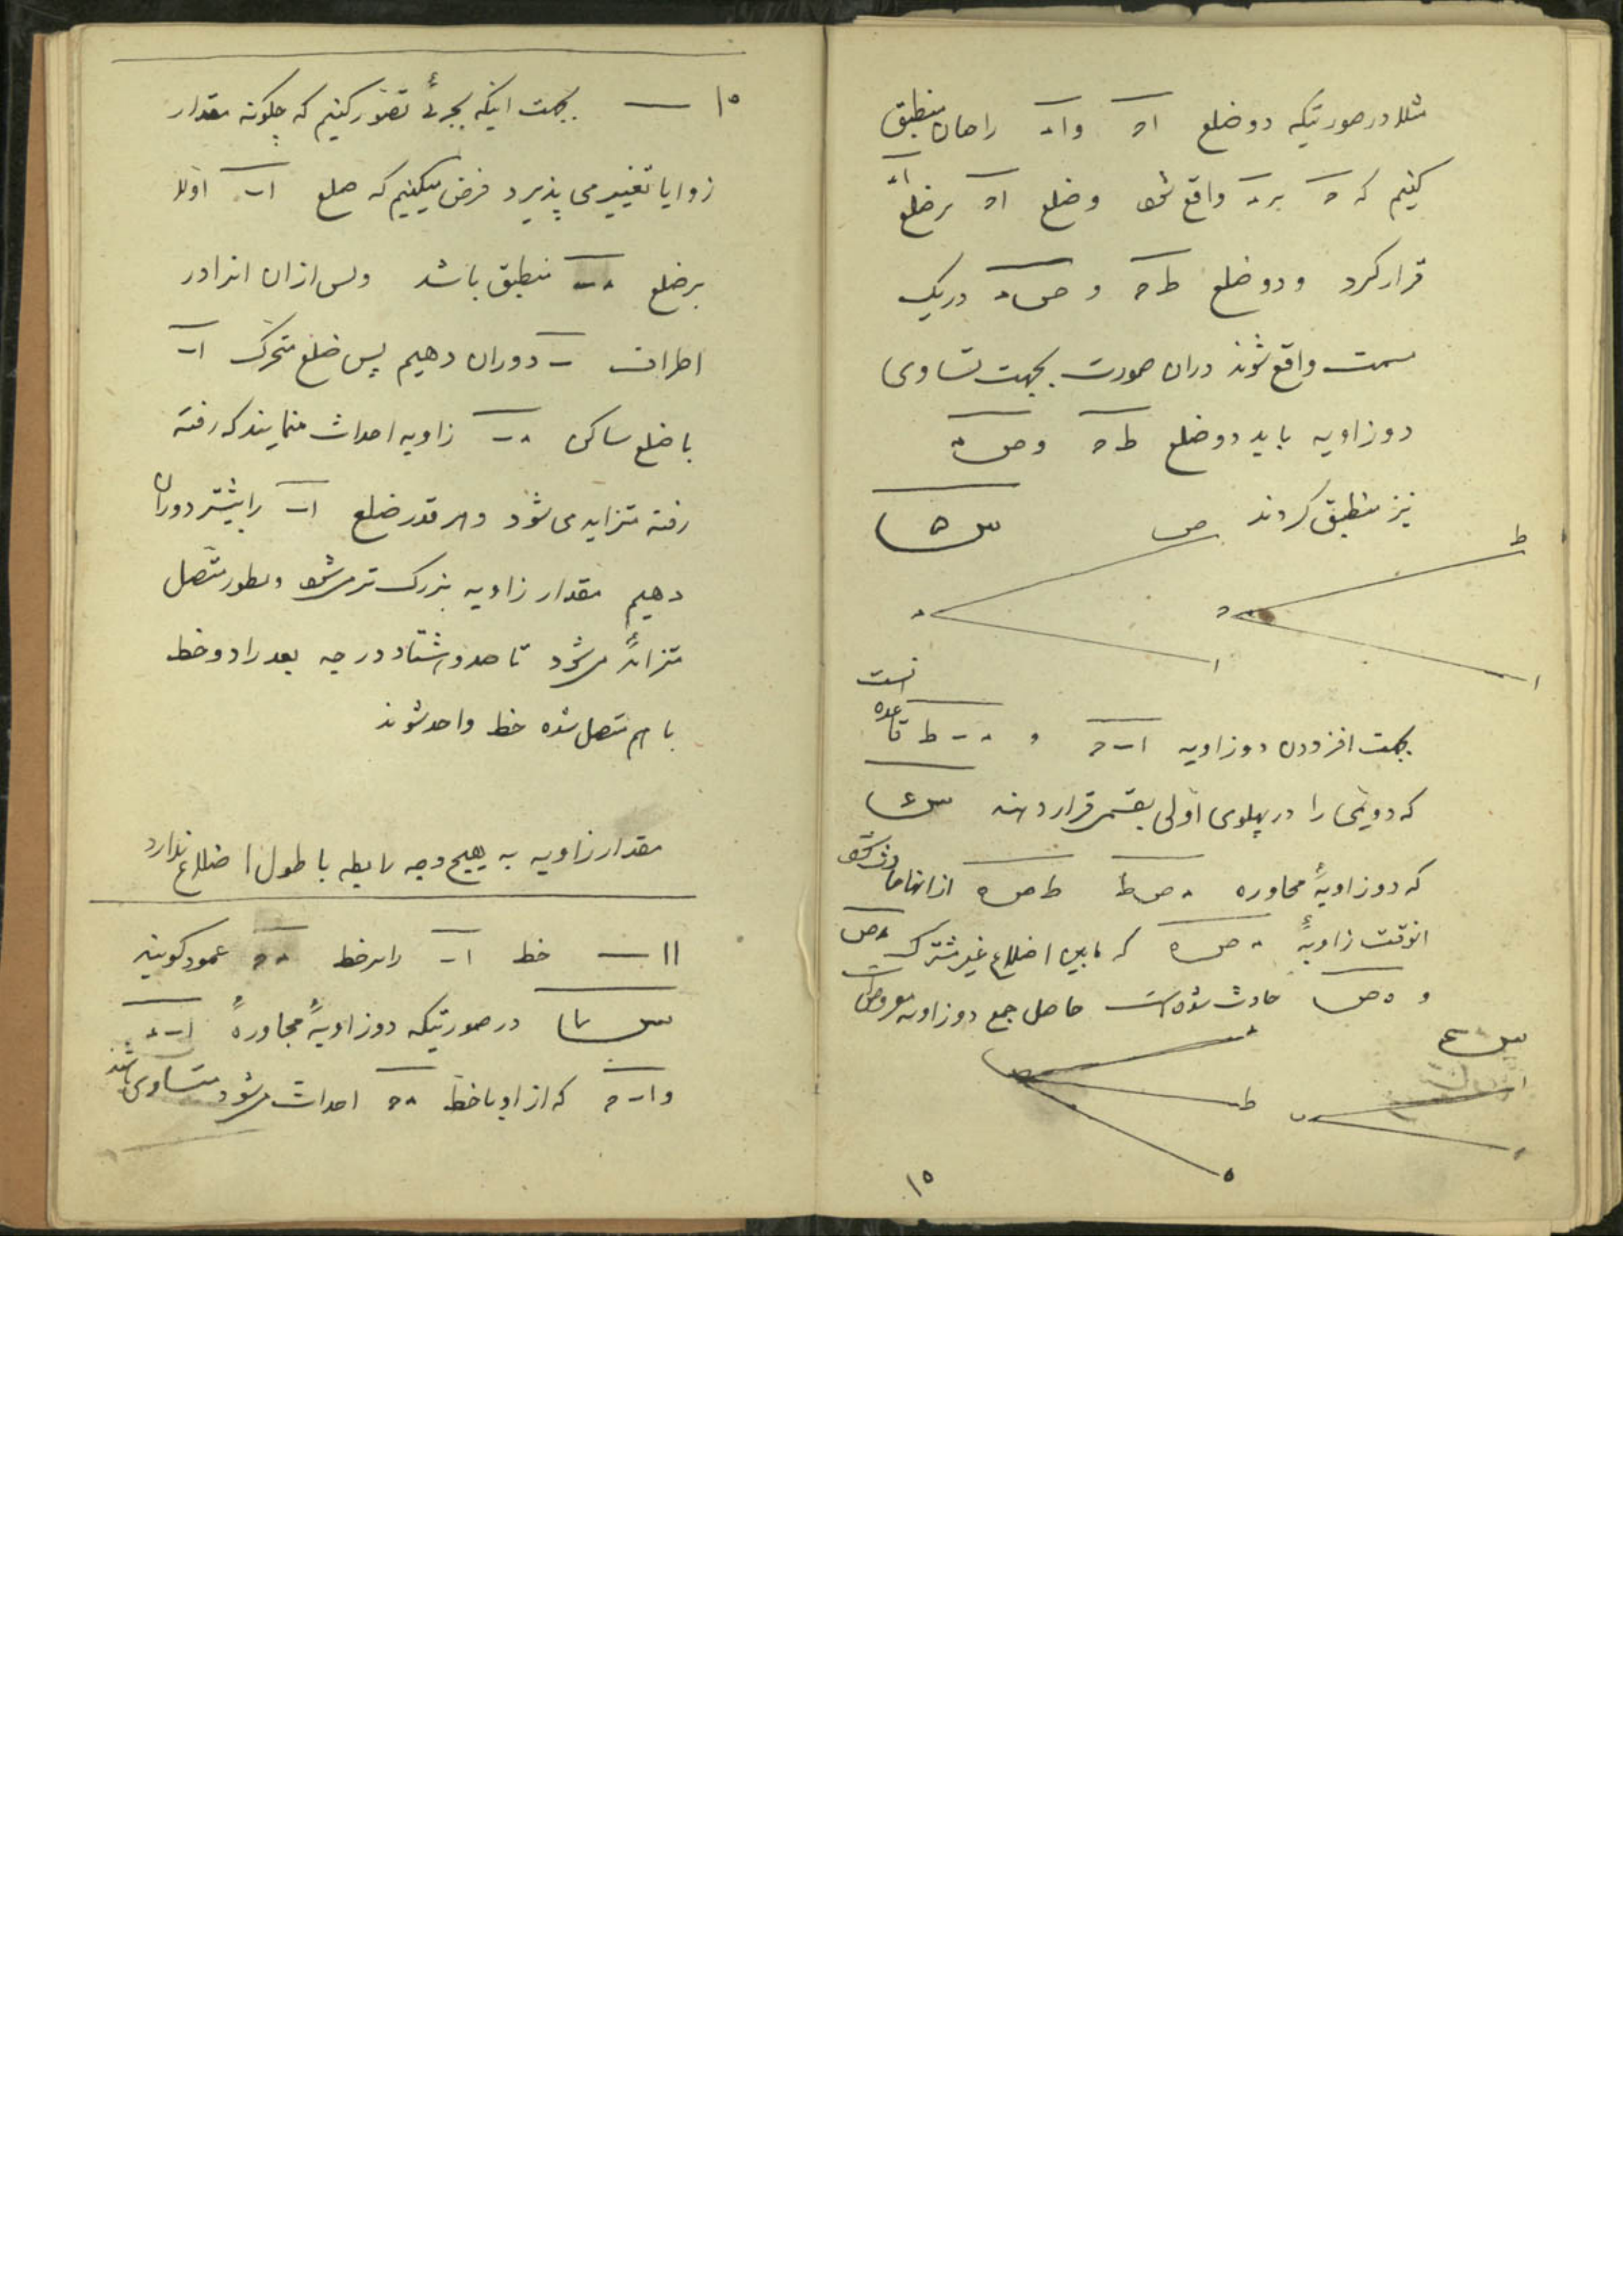 مثلا در صورتیکه دو ضلع اح و اد را جنان منطبق
کنیم که ح بر د واقع شود و ضلع اح بر ضلع اد
قرار کرد و دو ضلع ط ح و ص د در یک
سمت واقع شوند دران صورت بجهت تساوی
دو زاویه باید دو ضلع ط ح و ص د
نیز منطبق کردند ش ۵
ص ط
د ح
ا ا
بجهت افزودن دو زاویه ا ب ح و د ب ط قاعده انست
که دویمی را در پهلوی اولی بقسمی قرار دهند ش ۶
که دو زاویهٔ مجاوره د ص ط ط ص ه از انها حادث شود
انوقت زاویهٔ د ص ه که مابین اضلاع غیر مشترک د ص
و ه ص حادث شده است حاصل جمع دو زاویه مفروض است
ش ۶
د ص ط ه
ا ب
۱۵
۱۰ — بجهت اینکه بجزئی تصور کنیم که چکونه مقدار
زوایا تغییر می پذیرد فرض میکنیم که ضلع ا ب اولا
بر ضلع د ب منطبق باشد و پس ازان انرا در
اطراف ب دوران دهیم پس ضلع متحرک ا ب
با ضلع ساکن د ب زاویه احداث مینمایند که رفته
رفته متزاید می شود و هر قدر ضلع ا ب را بیشتر دوران
دهیم مقدار زاویه بزرک تر میشود و بطور متصل
متزاید میشود تا صد و هشتاد درجه بعد را دو خط
با هم متصل شده خط واحد شوند
مقدار زاویه به هیچ وجه رابطه با طول اضلاع ندارد
۱۱ — خط ا ب را بر خط د ح عمود کویند
ش ۷ در صورتیکه دو زاویهٔ مجاورهٔ ا ب د
و ا ب ح که از او با خط د ح احداث میشود متساوی باشند